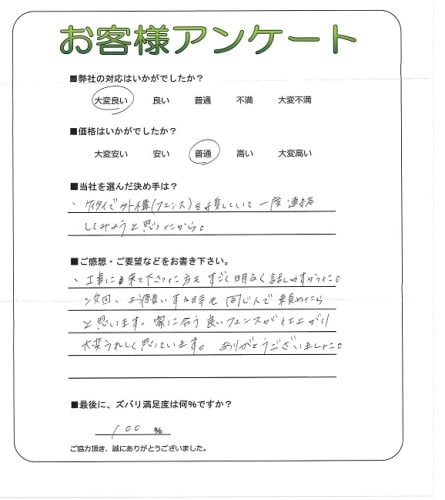 お客様アンケート
■弊社の対応はいかがでしたか?
大変良い 良い 普通 不満 大変不満
■価格はいかがでしたか?
大変安い 安い 普通 高い 大変高い
■当社を選んだ決め手は?
、ケイタイで外構(フェンス)を検索していて一度連絡
してみようと思ったから。
■ご感想・ご要望などをお書き下さい。
、工事に来て下さった方もすごく明るく話しやすかった。
次回、お願いする時も同じ人で頼めたら
と思います。家に合う良いフェンスが仕上がり
大変うれしく思っています。ありがとうございました。
■最後に、ズバリ満足度は何%ですか?
100 %
ご協力頂き、誠にありがとうございました。